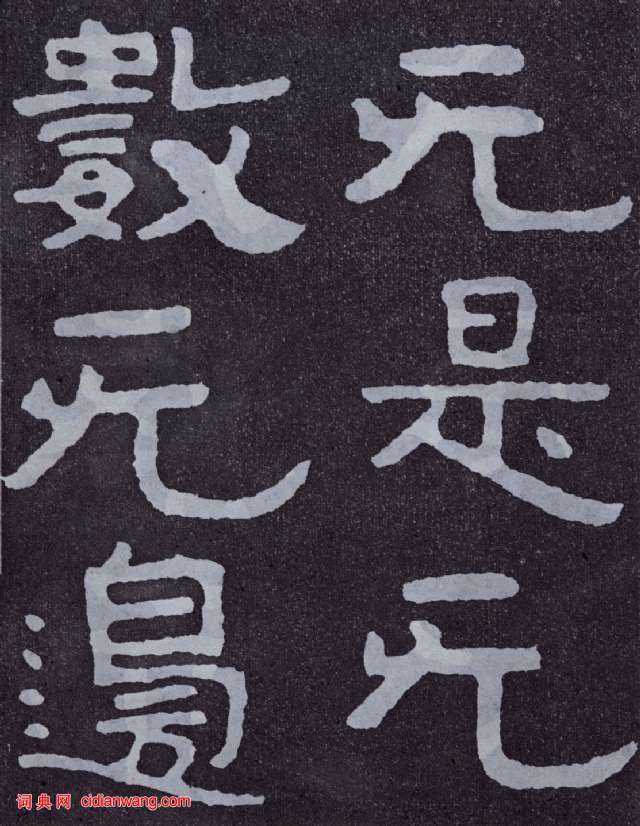 无是无
數无邊
词典网 cidianwang.com